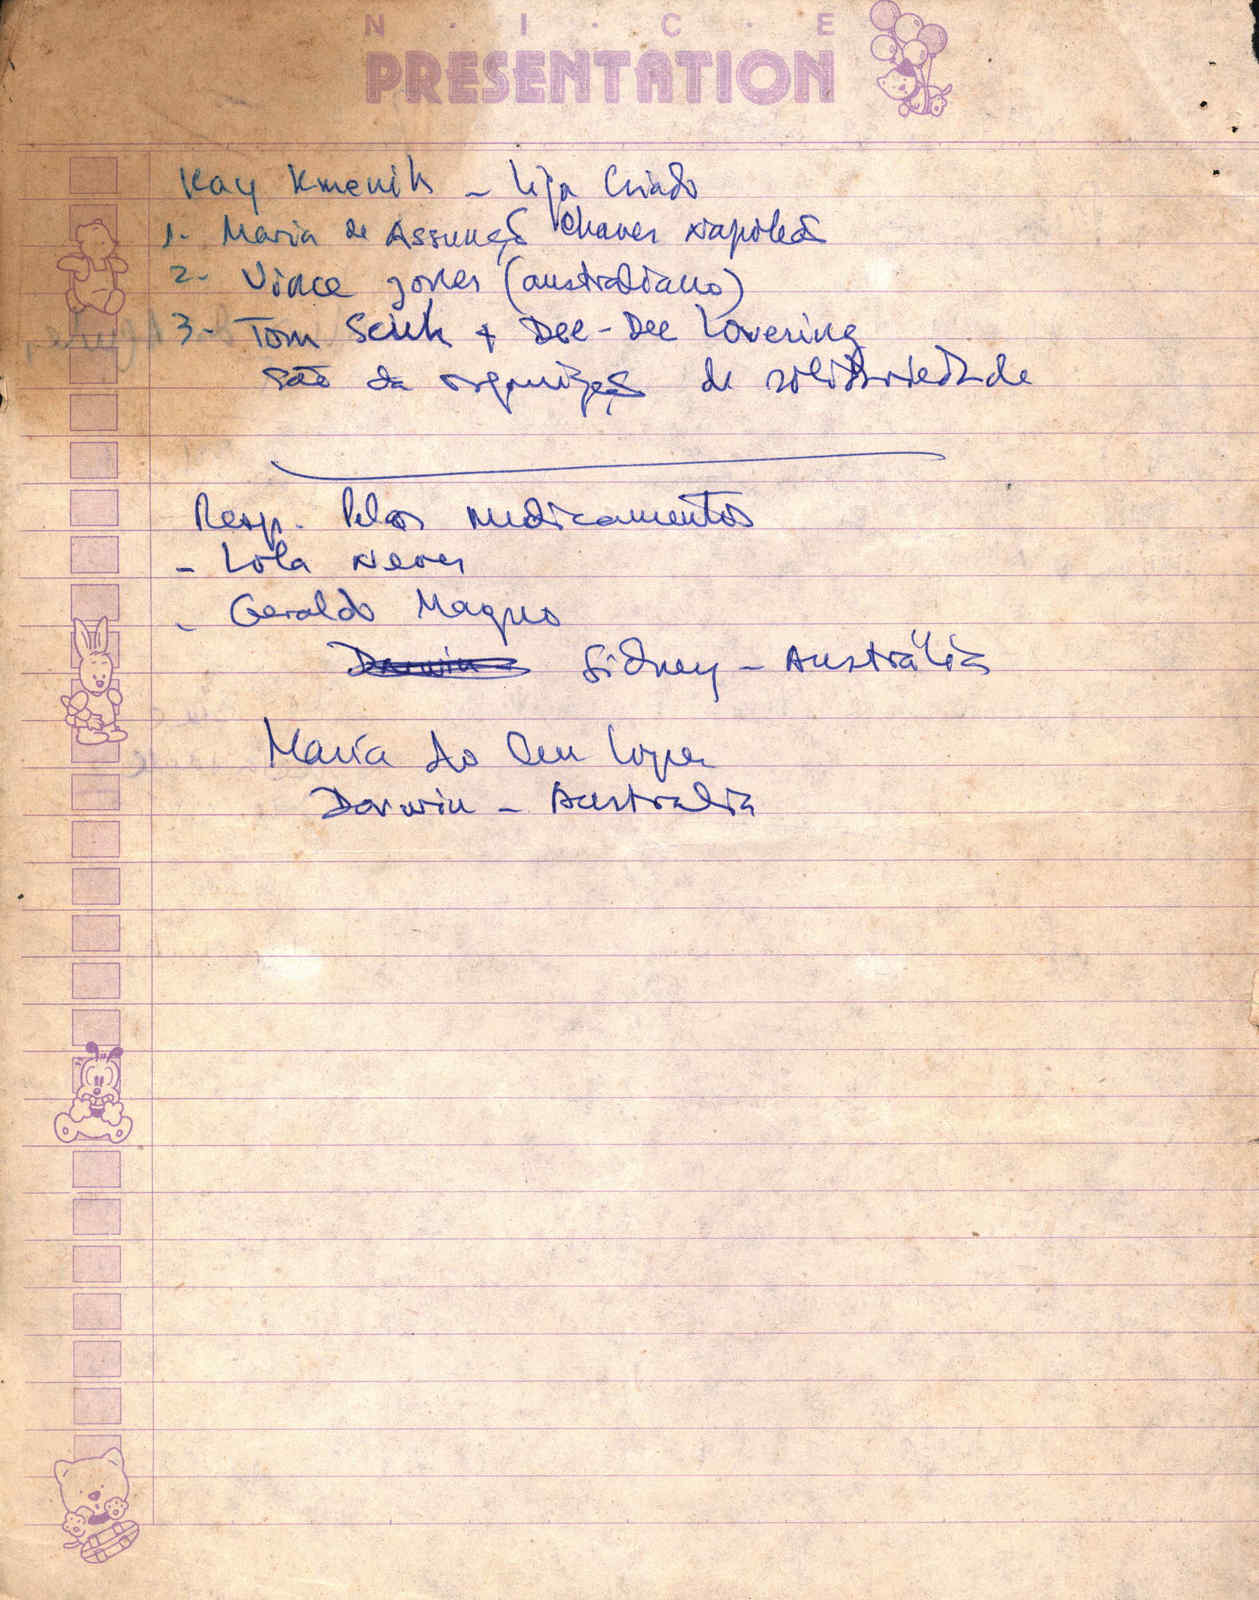 N · I · C · E
PRESENTATION
Kay Kmenik - Lija Criado
1- Maria de Assunção Chaves Napoleão
2- Vince Jones (australiano)
3- Tom + Dee-Dee Lovering
são da organização de solidariedade
Resp. Pelos medicamentos
- Lola Neves
- Geraldo Magno
Darwin Sidney - Austrália
Maria do Céu Lopes
Darwin - Australia